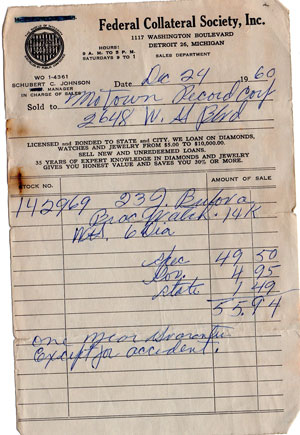 Federal Collateral Society, Inc.
1117 WASHINGTON BOULEVARD
DETROIT 26, MICHIGAN
HOURS:
9 A. M. TO 5 P. M.
SATURDAYS 9 TO 1
SALES DEPARTMENT
WO 1-4361
SCHUBERT C. JOHNSON
MANAGER
IN CHARGE OF SALES
Date Dec 24 1960
Sold to Motown Record Corp
2648 W. Gd Blvd
LICENSED and BONDED TO STATE and CITY. WE LOAN ON DIAMONDS,
WATCHES AND JEWELRY FROM $5.00 TO $10,000.00.
SELL NEW AND UNREDEEMED LOANS.
35 YEARS OF EXPERT KNOWLEDGE IN DIAMONDS AND JEWELRY
GIVES YOU HONEST VALUE AND SAVES YOU 30% OR MORE.
STOCK NO. AMOUNT OF SALE
142969 23J Bulova
Brac Watch. 14K
6 Dia
Spec 49 50
Gov. 4 95
state 1 49
55.94
one year Guarantee
Except for accident.